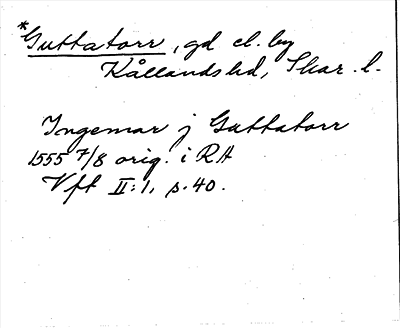 *Guttatorr, gd el. by
Kållands hd, Skar. l.
Ingemar j Guttatorr
1555 7/8 orig. i RA
Vft II:1, s. 40.